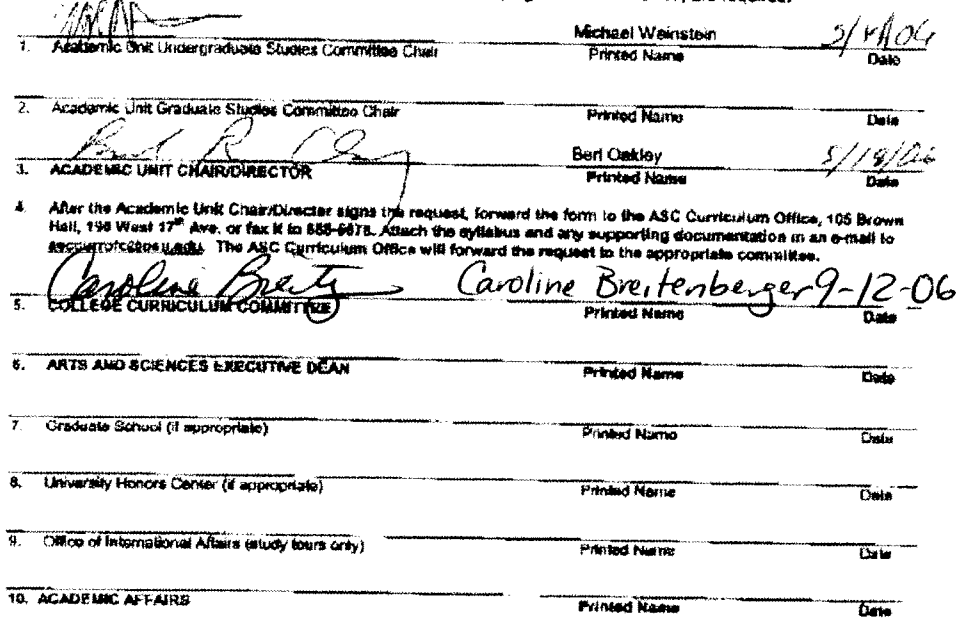 are required.
Michael Weinstein
1. Academic Unit Undergraduate Studies Committee Chair Printed Name Date
2. Academic Unit Graduate Studies Committee Chair Printed Name Date
Berl Oakley 5/18/06
3. ACADEMIC UNIT CHAIR/DIRECTOR Printed Name Date
4. After the Academic Unit Chair/Director signs the request, forward the form to the ASC Curriculum Office, 105 Brown
Hall, 190 West 17th Ave. or fax it to Attach the syllabus and any supporting documentation in an e-mail to
The ASC Curriculum Office will forward the request to the appropriate committee.
Caroline Breitenberger 9-12-06
5. COLLEGE CURRICULUM COMMITTEE Printed Name Date
6. ARTS AND SCIENCES EXECUTIVE DEAN Printed Name Date
7. Graduate School (if appropriate) Printed Name Date
8. University Honors Center (if appropriate) Printed Name Date
9. Office of International Affairs (study tours only) Printed Name Date
10. ACADEMIC AFFAIRS Printed Name Date